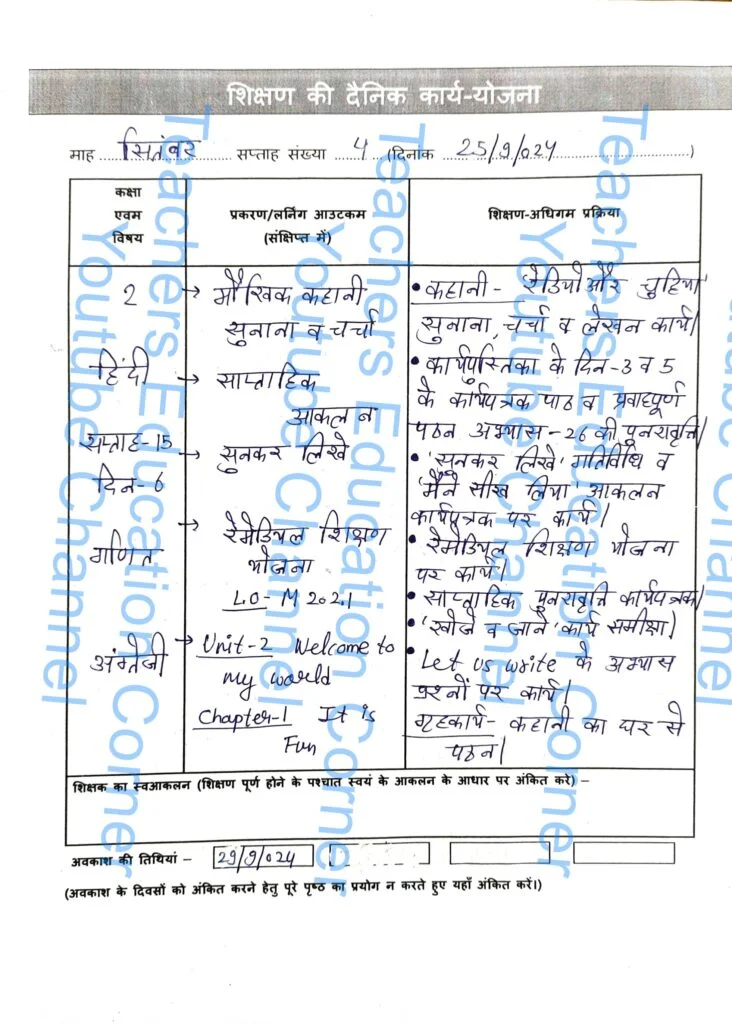 शिक्षण की दैनिक कार्य-योजना
माह सितंबर सप्ताह संख्या 4 (दिनांक 25/9/024)
कक्षा
एवम
विषय
प्रकरण/लर्निंग आउटकम
(संक्षिप्त में)
शिक्षण-अधिगम प्रक्रिया
2
हिंदी
सप्ताह-15
दिन-6
गणित
अंग्रेजी
→ मौखिक कहानी
सुनाना व चर्चा
→ साप्ताहिक
आकलन
→ सुनकर लिखे
→ रेमेडियल शिक्षण
योजना
LO- M 202.1
→ Unit-2 Welcome to
my world
Chapter-1 It is
Fun
• कहानी - 'रेडियो और चुहिया'
सुनाना, चर्चा व लेखन कार्य।
• कार्यपुस्तिका के दिन-3 व 5
के कार्यपत्रक पाठ व प्रवाहपूर्ण
पठन अभ्यास-26 की पुनरावृत्ति।
• 'सुनकर लिखे' गतिविधि व
'मैंने सीख लिया' आकलन
कार्यपत्रक पर कार्य।
• रेमेडियल शिक्षण योजना
पर कार्य।
• साप्ताहिक पुनरावृत्ति कार्यपत्रक।
• 'खोजे व जाने' कार्य समीक्षा।
• Let us write के अभ्यास
प्रश्नों पर कार्य।
गृहकार्य- कहानी का घर से
पठन।
शिक्षक का स्वआकलन (शिक्षण पूर्ण होने के पश्चात स्वयं के आकलन के आधार पर अंकित करे) –
अवकाश की तिथियां – 29/9/024
(अवकाश के दिवसों को अंकित करने हेतु पूरे पृष्ठ का प्रयोग न करते हुए यहाँ अंकित करें।)
Teachers Education Corner
Youtube Channel
Teachers Education Corner
Youtube Channel
Teachers Education Corner
Youtube Channel